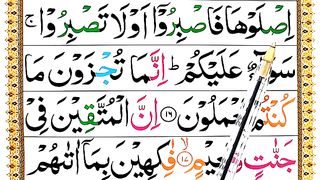 اِصْلَوْهَا فَاصْبِرُوْٓا اَوْ لَا تَصْبِرُوْا ۚ
سَوَآءٌ عَلَيْكُمْ ؕ اِنَّمَا تُجْزَوْنَ مَا
كُنْتُمْ تَعْمَلُوْنَ ﴿۱۶﴾ اِنَّ الْمُتَّقِيْنَ فِيْ
جَنّٰتٍ وَّنَعِيْمٍ ﴿۱۷﴾ فٰكِهِيْنَ بِمَاۤ اٰتٰىهُمْ